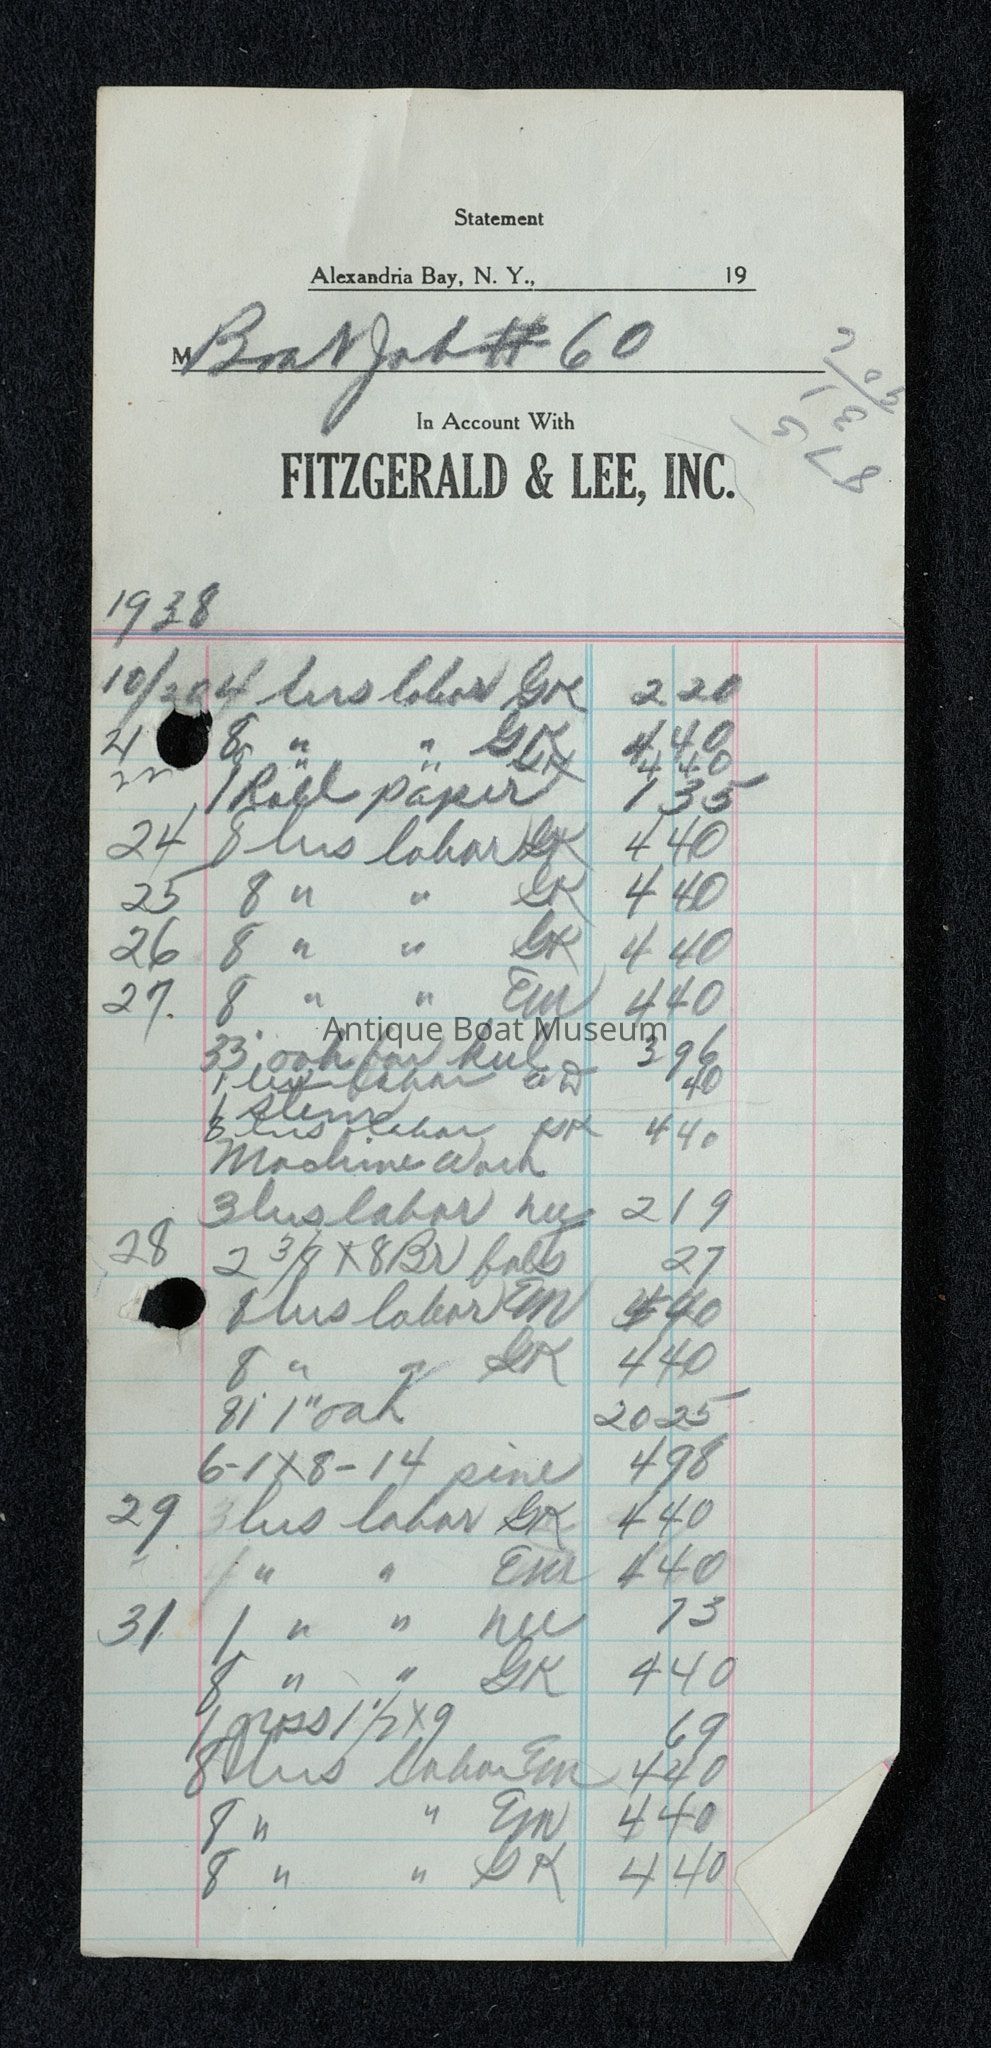 Statement
Alexandria Bay, N. Y., 19
M Boat Job # 60
In Account With
FITZGERALD & LEE, INC.
1938
10/20 4 hrs labor GK 2 20
21 8 " " GK 4 40
22 8 " " GK 4 40
1 Roll paper 1 35
24 8 hrs labor GK 4 40
25 8 " " GK 4 40
26 8 " " GK 4 40
27. 8 " " Em 4 40
Antique Boat Museum
33' oak for keel 3 96
1 labor 40
1 stem
8 hrs labor GK 4 40
Machine Work
3 hrs labor 2 19
28 2 3/8 X 8 Br bolts 27
8 hrs labor Em 4 40
8 " " GK 4 40
81' 1" oak 20 25
6-1 X 8-14 pine 4 98
29 hrs labor GK 4 40
" " Em 4 40
31 1 " " 73
8 " " GK 4 40
1 gross 1 1/2 X 9 69
8 hrs labor Em 4 40
8 " " Em 4 40
8 " " GK 4 40